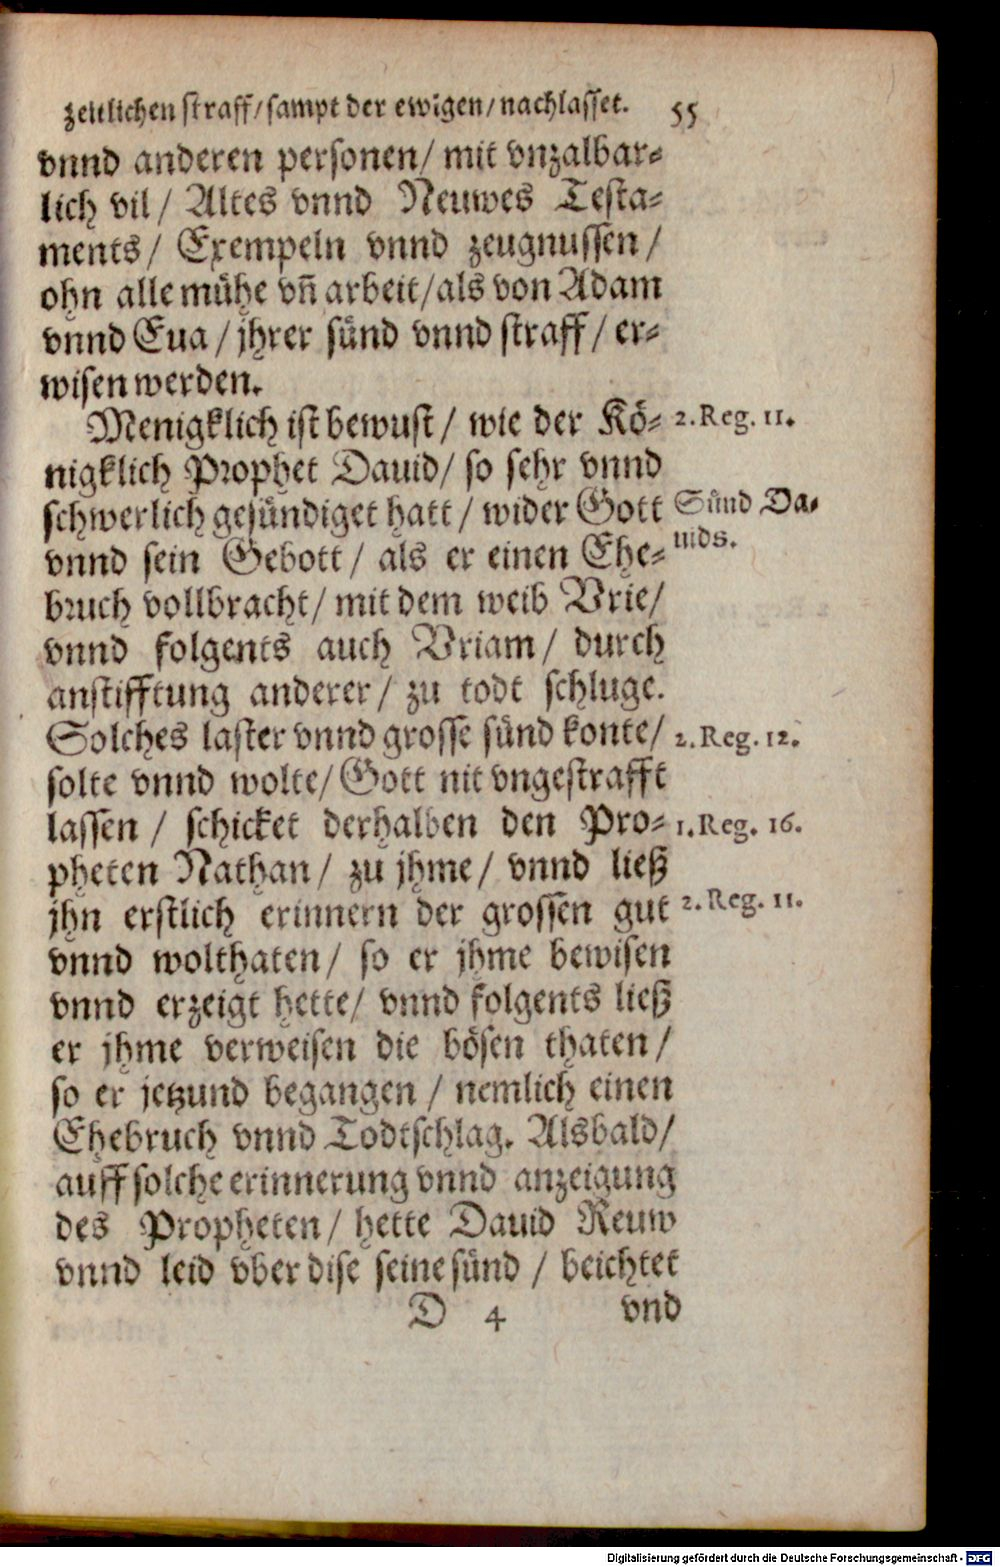 zeitlichen straff/ sampt der ewigen/ nachlasset. 55
vnnd anderen personen/ mit vnzalbar-
lich vil/ Altes vnnd Neuwes Testa-
ments/ Exempeln vnnd zeugnussen/
ohn alle mühe vñ arbeit/ als von Adam
vnnd Eua/ jhrer sünd vnnd straff/ er-
wisen werden.
Menigklich ist bewust/ wie der Kö-
2. Reg. 11.
nigklich Prophet Dauid/ so sehr vnnd
schwerlich gesündiget hatt/ wider Gott
Sünd Da-
uids.
vnnd sein Gebott/ als er einen Ehe-
bruch vollbracht/ mit dem weib Vrie/
vnnd folgents auch Vriam/ durch
anstifftung anderer/ zu todt schluge.
Solches laster vnnd grosse sünd konte/
2. Reg. 12.
solte vnnd wolte/ Gott nit vngestrafft
lassen/ schicket derhalben den Pro-
1. Reg. 16.
pheten Nathan/ zu jhme/ vnnd ließ
jhn erstlich erinnern der grossen gut
2. Reg. 11.
vnnd wolthaten/ so er jhme bewisen
vnnd erzeigt hette/ vnnd folgents ließ
er jhme verweisen die bösen thaten/
so er jetzund begangen/ nemlich einen
Ehebruch vnnd Todtschlag. Alsbald/
auff solche erinnerung vnnd anzeigung
des Propheten/ hette Dauid Reuw
vnnd leid vber dise seine sünd/ beichtet
D 4 vnd
Digitalisierung gefördert durch die Deutsche Forschungsgemeinschaft - DFG